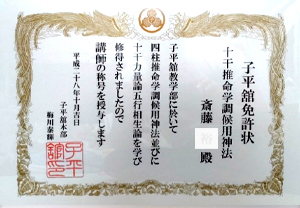 子平舘免許状
十干推命学調候用神法
斎藤 殿
子平舘教学部に於いて
四柱推命学調候用神法並びに
十干力量論五行相生論を学び
修得されましたので
講師の称号を授与します
平成二十八年十月吉日
子平舘本部
梅川泰輝